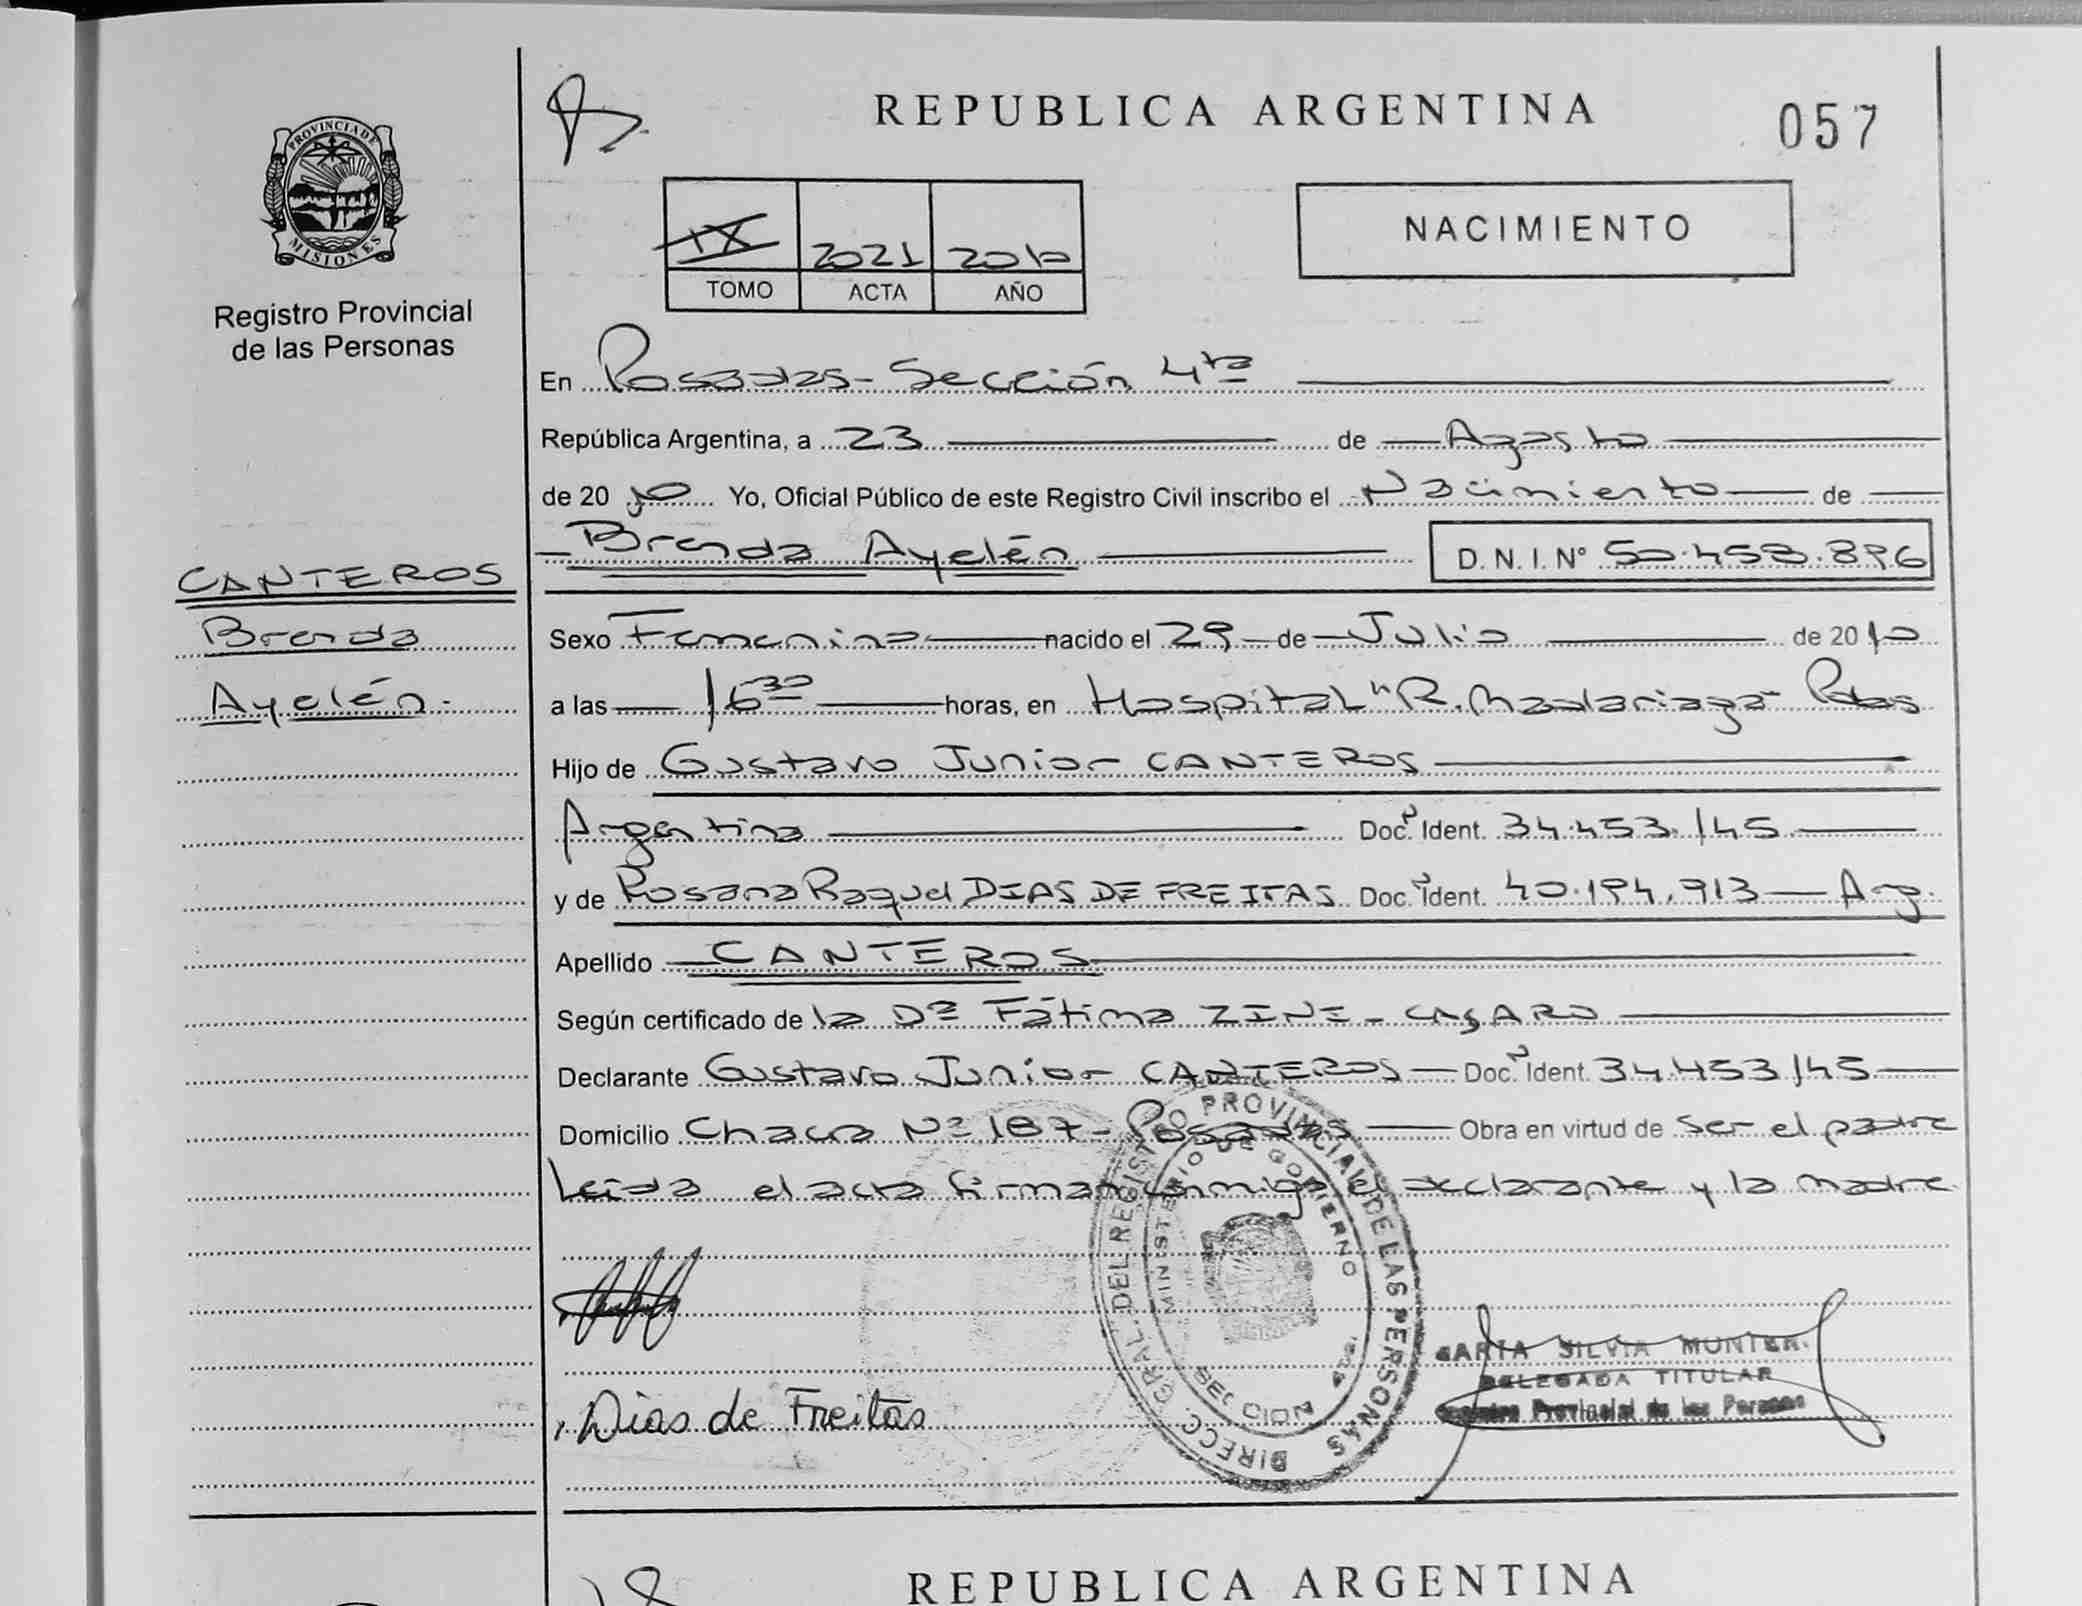 REPUBLICA ARGENTINA
057
PROVINCIA DE
MISIONES
Registro Provincial
de las Personas
IX 2021 2010
TOMO ACTA AÑO
NACIMIENTO
En Posadas- Sección 4ta
República Argentina, a 23 de Agosto
de 2010 Yo, Oficial Público de este Registro Civil inscribo el Nacimiento de
Brenda Ayelén D. N. I. N° 50.458.896
CANTEROS
Brenda
Ayelén.
Sexo Femenino nacido el 29 de Julio de 2010
a las 16 30 horas, en Hospital "R. Madariaga" Pdas
Hijo de Gustavo Junior CANTEROS
Argentina Doc. Ident. 34.453.145
y de Rosana Raquel DIAS DE FREITAS Doc. Ident. 40.194.913 Arg.
Apellido CANTEROS
Según certificado de la Dra Fátima ZINI-
Declarante Gustavo Junior CANTEROS Doc. Ident. 34.453.145
Domicilio Chacra Nº 187- Posadas Obra en virtud de ser el padre
Leída el acta firman conmigo el declarante y la madre
DIRECC. GRAL. DEL REGISTRO PROVINCIAL DE LAS PERSONAS
MINISTERIO DE GOBIERNO
SECCION
MARIA SILVIA
DELEGADA TITULAR
Registro Provincial de las Personas
Dias de Freitas
REPUBLICA ARGENTINA